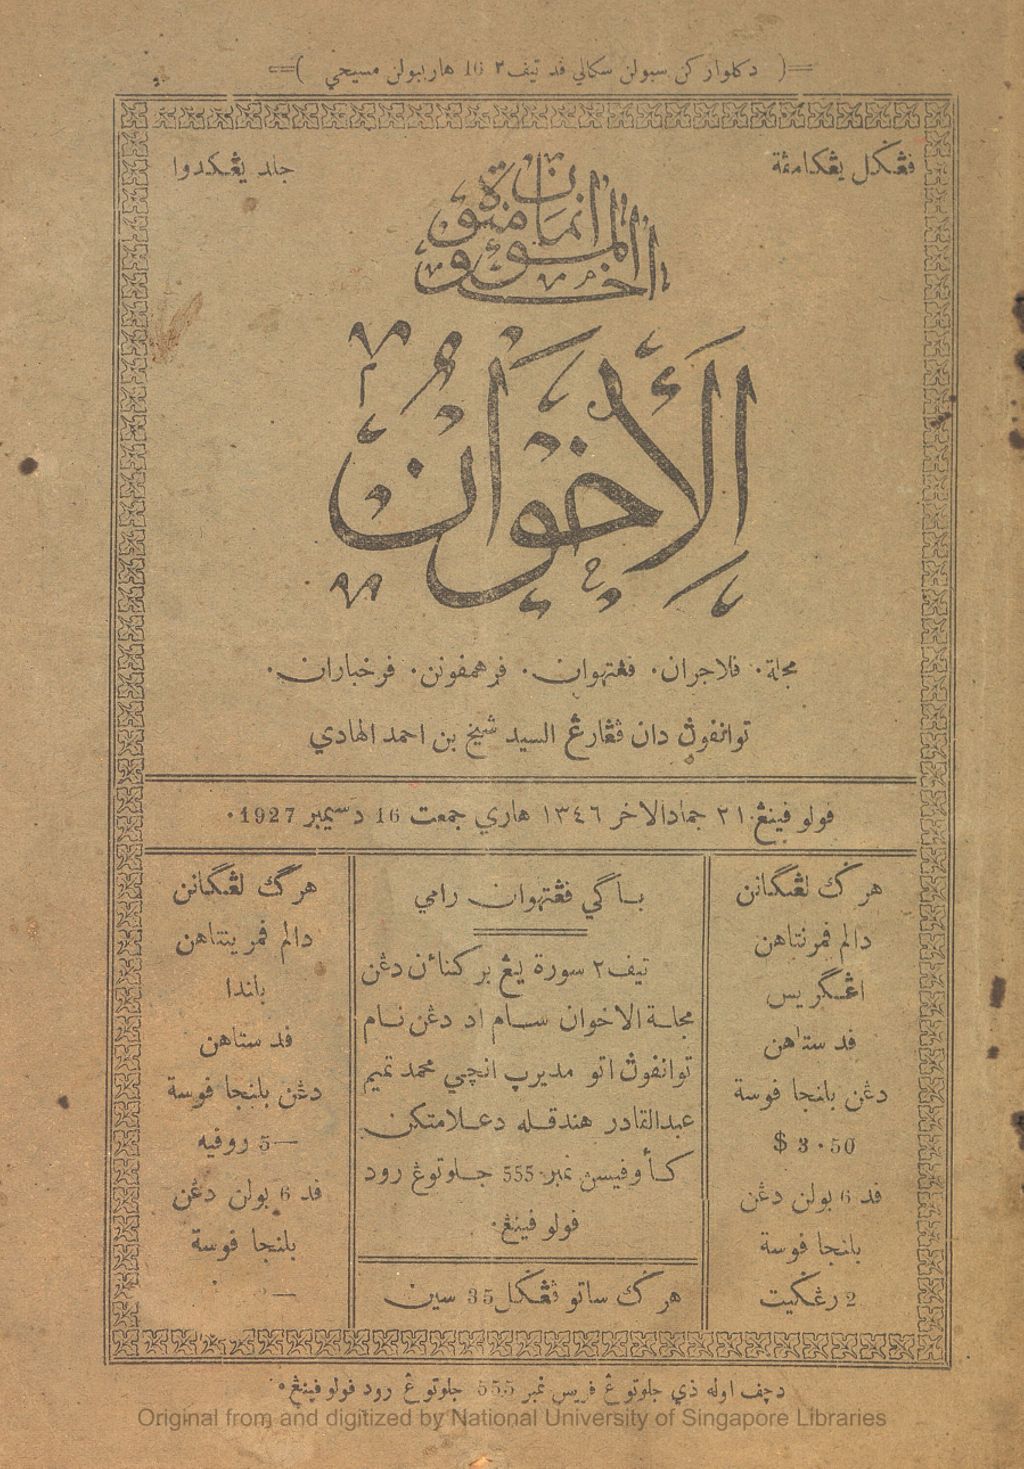 ( دكلواركن سبولن سكالي فد تيف٢ 16 هاربولن مسيحي )
ڤڠݢل يڠكامڤة
جلد يڠكدوا
انما المؤمنون اخوة
الإخوان
مجلة٠ ڤلاجران٠ ڤڠتهوان٠ ڤرهمڤونن٠ ڤرخباران٠
توانڤوڽ دان ڤڠارڠ السيد شيخ بن احمد الهادي
ڤولو ڤينڠ ٢١ جمادالاخر ١٣٤٦ هاري جمعت 16 دسيمبر 1927٠
هرݢ لڠݢانن
دالم ڤمرنتاهن
اڠݢريس
ڤد ستاهن
دڠن بلنجا ڤوسة
$ 3·50
ڤد 6 بولن دڠن
بلنجا ڤوسة
2 رڠݢيت
باݢي ڤڠتهوان رامي
تيف٢ سورة يڠ بركنأن دڠن
مجلة الاخوان سام اد دڠن نام
توانڤوڽ اتو مديرڽ انچي محمد تميم
عبدالقادر هندقله دعلامتكن
كأوفيسن نمبر 555 جلوتوڠ رود
ڤولو ڤينڠ٠
هرݢ ساتو ڤڠݢل 35 سين
هرݢ لڠݢانن
دالم ڤمرينتاهن
باندا
ڤد ستاهن
دڠن بلنجا ڤوسة
—5 روڤيه
ڤد 6 بولن دڠن
بلنجا ڤوسة
دچڤ اوله دي جلوتوڠ ڤريس نمبر 555 جلوتوڠ رود ڤولو ڤينڠ٠
Original from and digitized by National University of Singapore Libraries